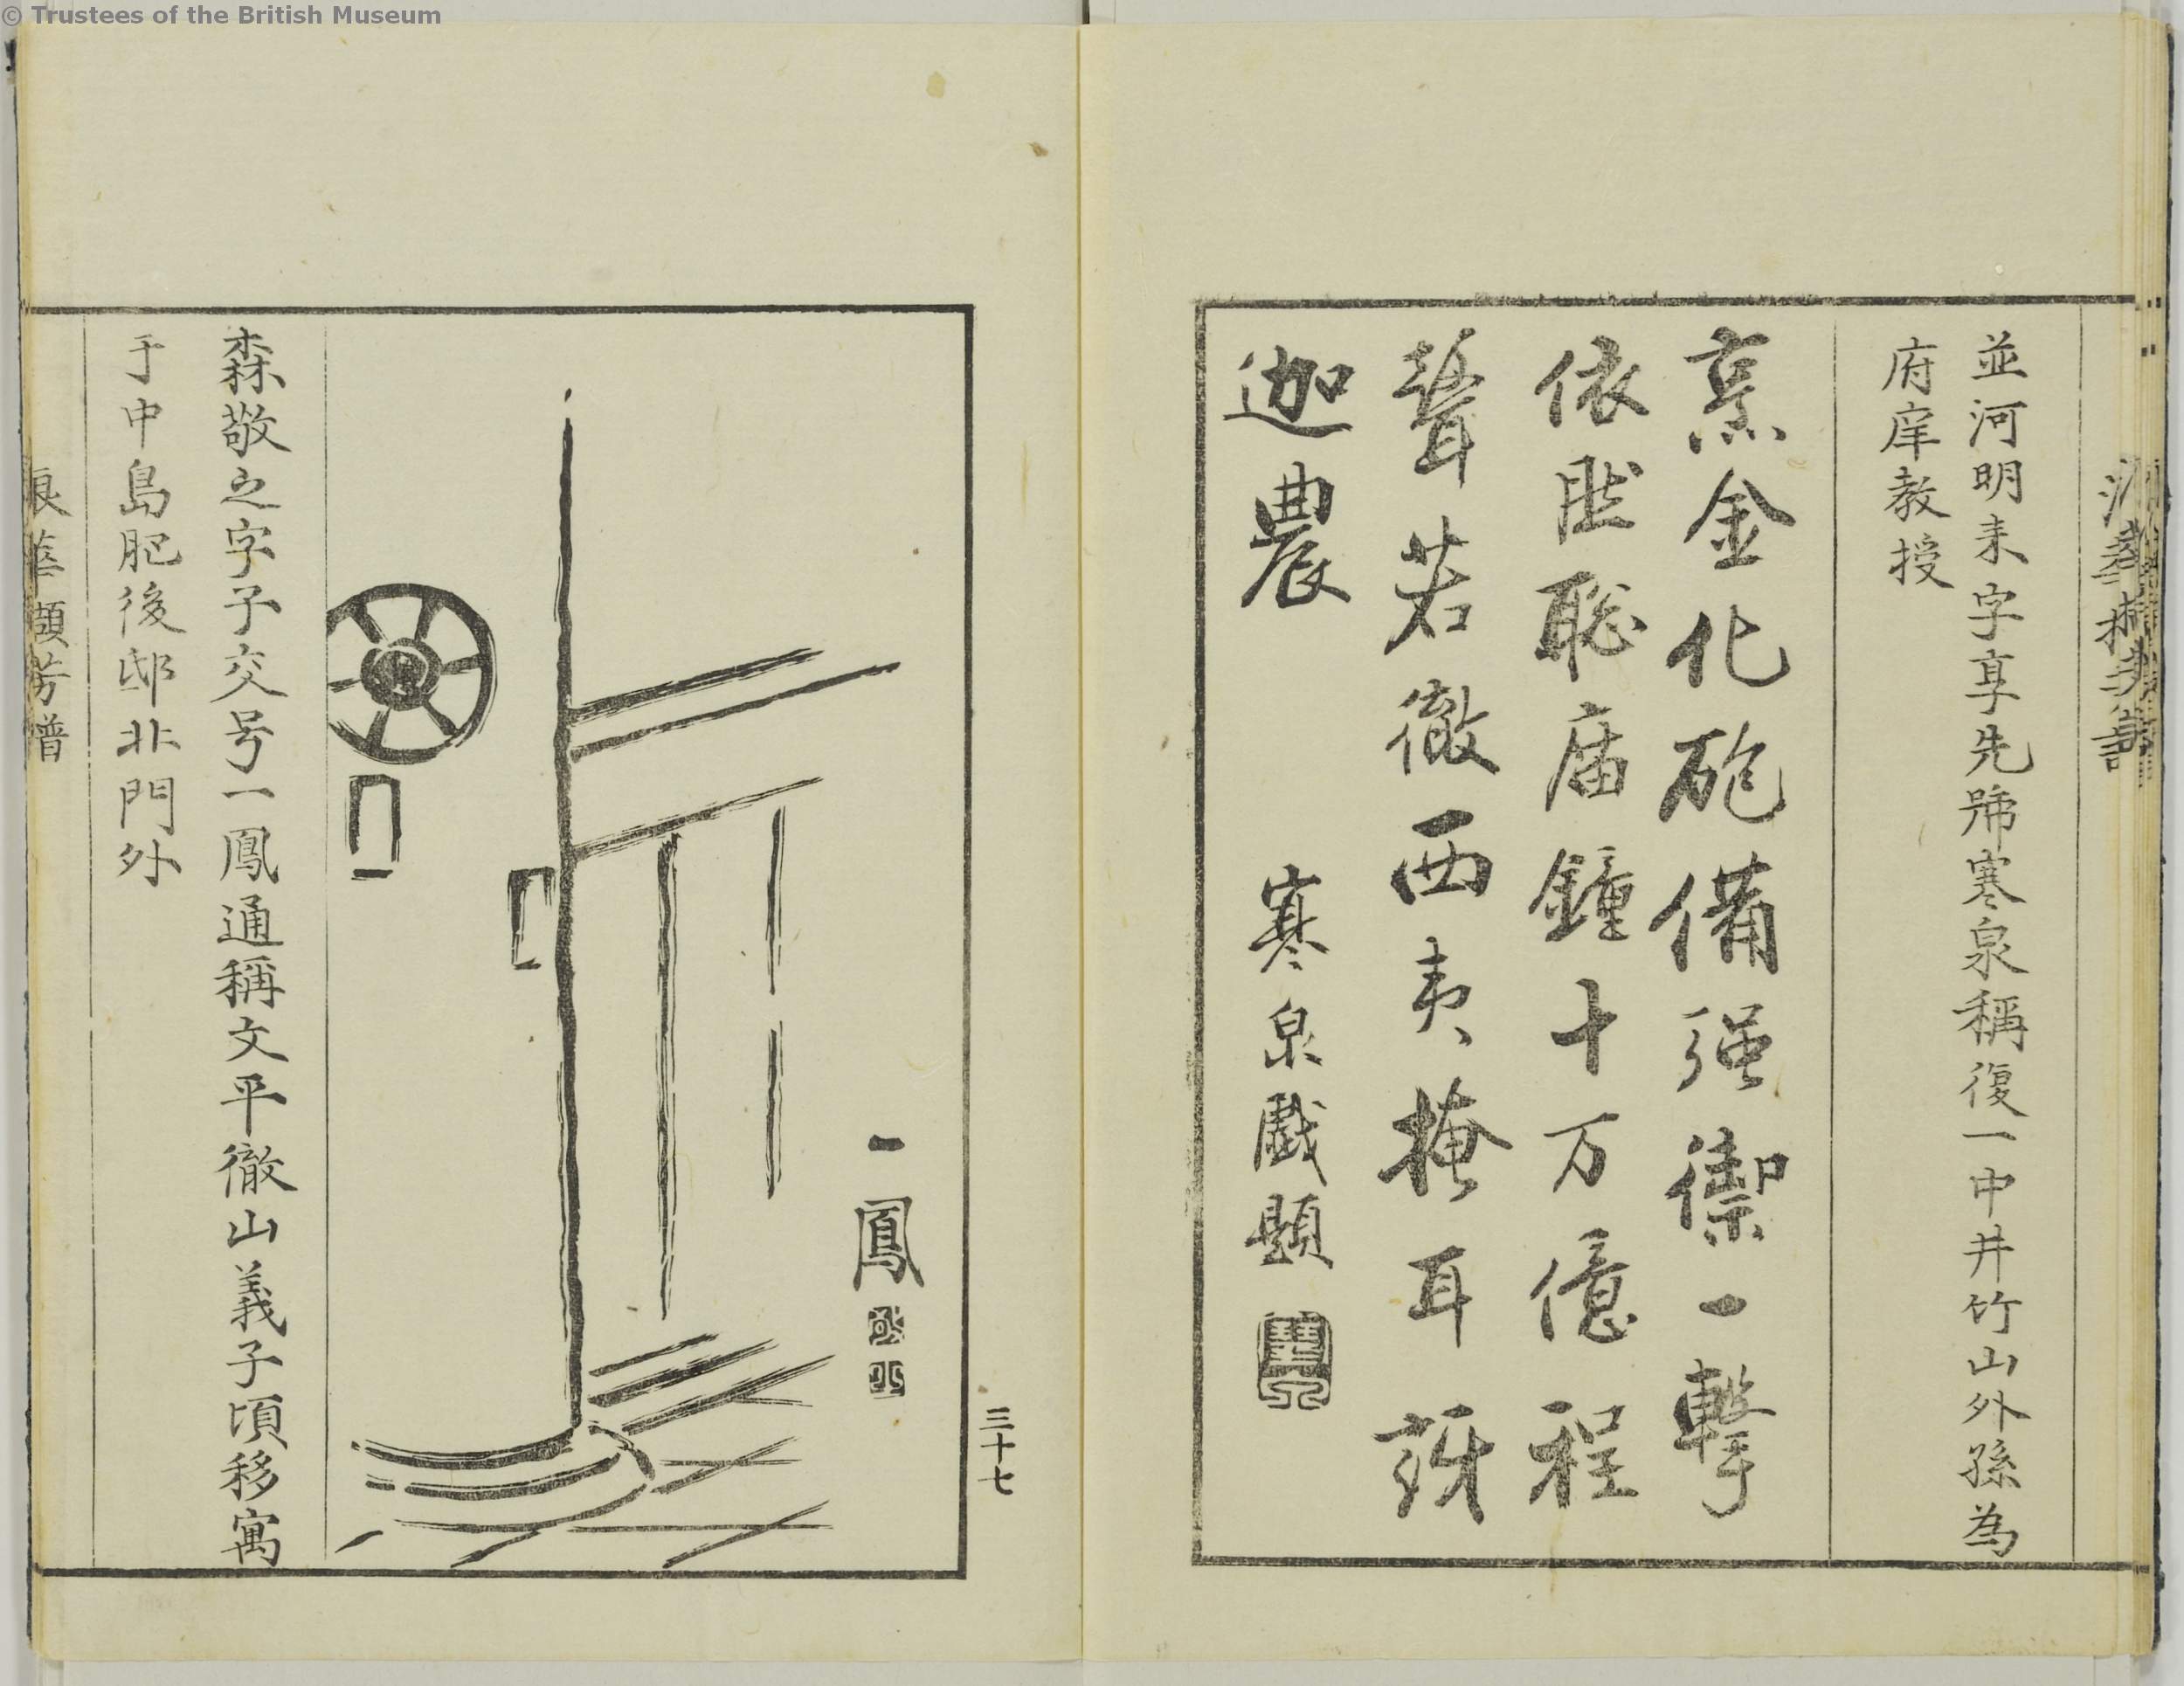 © Trustees of the British Museum
並河明来字享先號寒泉稱復一中井竹山外孫為
府庠教授
烹金化砲備强禦一擊
依然聡庙鐘十万億程
聲若徹西夷掩耳訝
迦農
寒泉戯題
三十七
一鳳
森敬之字子交号一鳳通稱文平徹山義子頃移寓
于中島肥後邸北門外